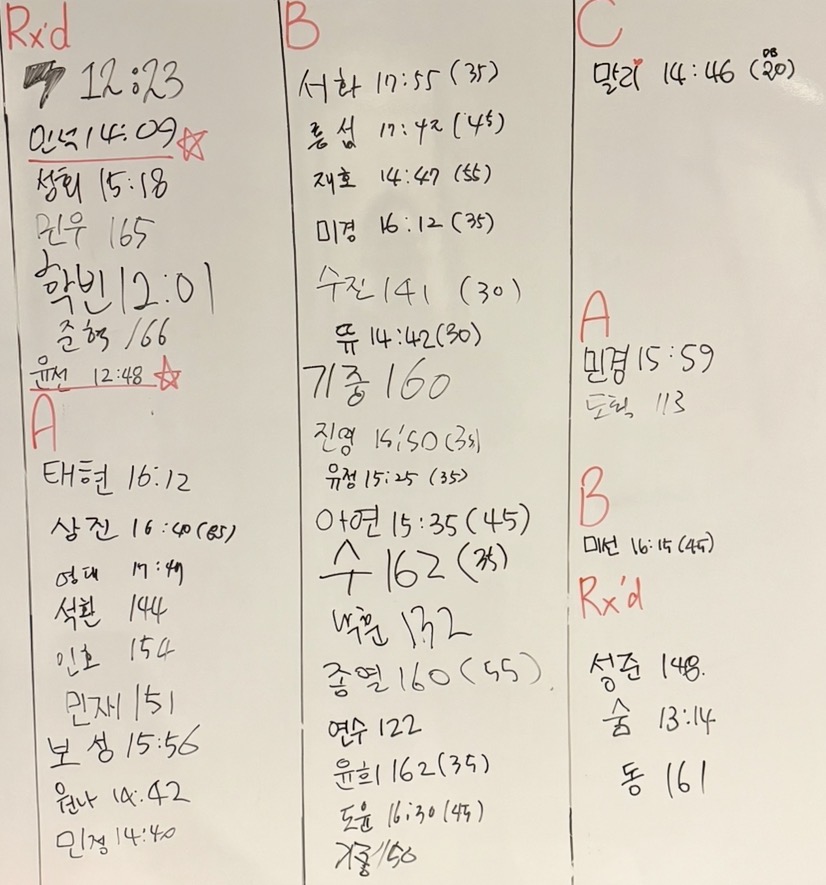 Rx'd
12:23
민석 14:09
성회 15:18
민우 165
학빈 12:01
준혁 166
윤선 12:48
A
태현 16:12
상진 16:40 (85)
영대 17:49
석환 144
인호 154
민재 151
보성 15:56
원나 14:42
민정 14:40
B
서화 17:55 (35)
흥섭 17:42 (45)
재호 14:47 (55)
미경 16:12 (35)
수진 141 (30)
뜌 14:42 (30)
기중 160
진영 15:50 (35)
유정 15:25 (35)
아연 15:35 (45)
수 162 (35)
132
종열 160 (55)
연수 122
윤희 162 (35)
도윤 16:30 (45)
150
C
말리 14:46 (DB 20)
A
민경 15:59
113
B
미선 16:15 (45)
Rx'd
성준 148
숨 13:14
동 161